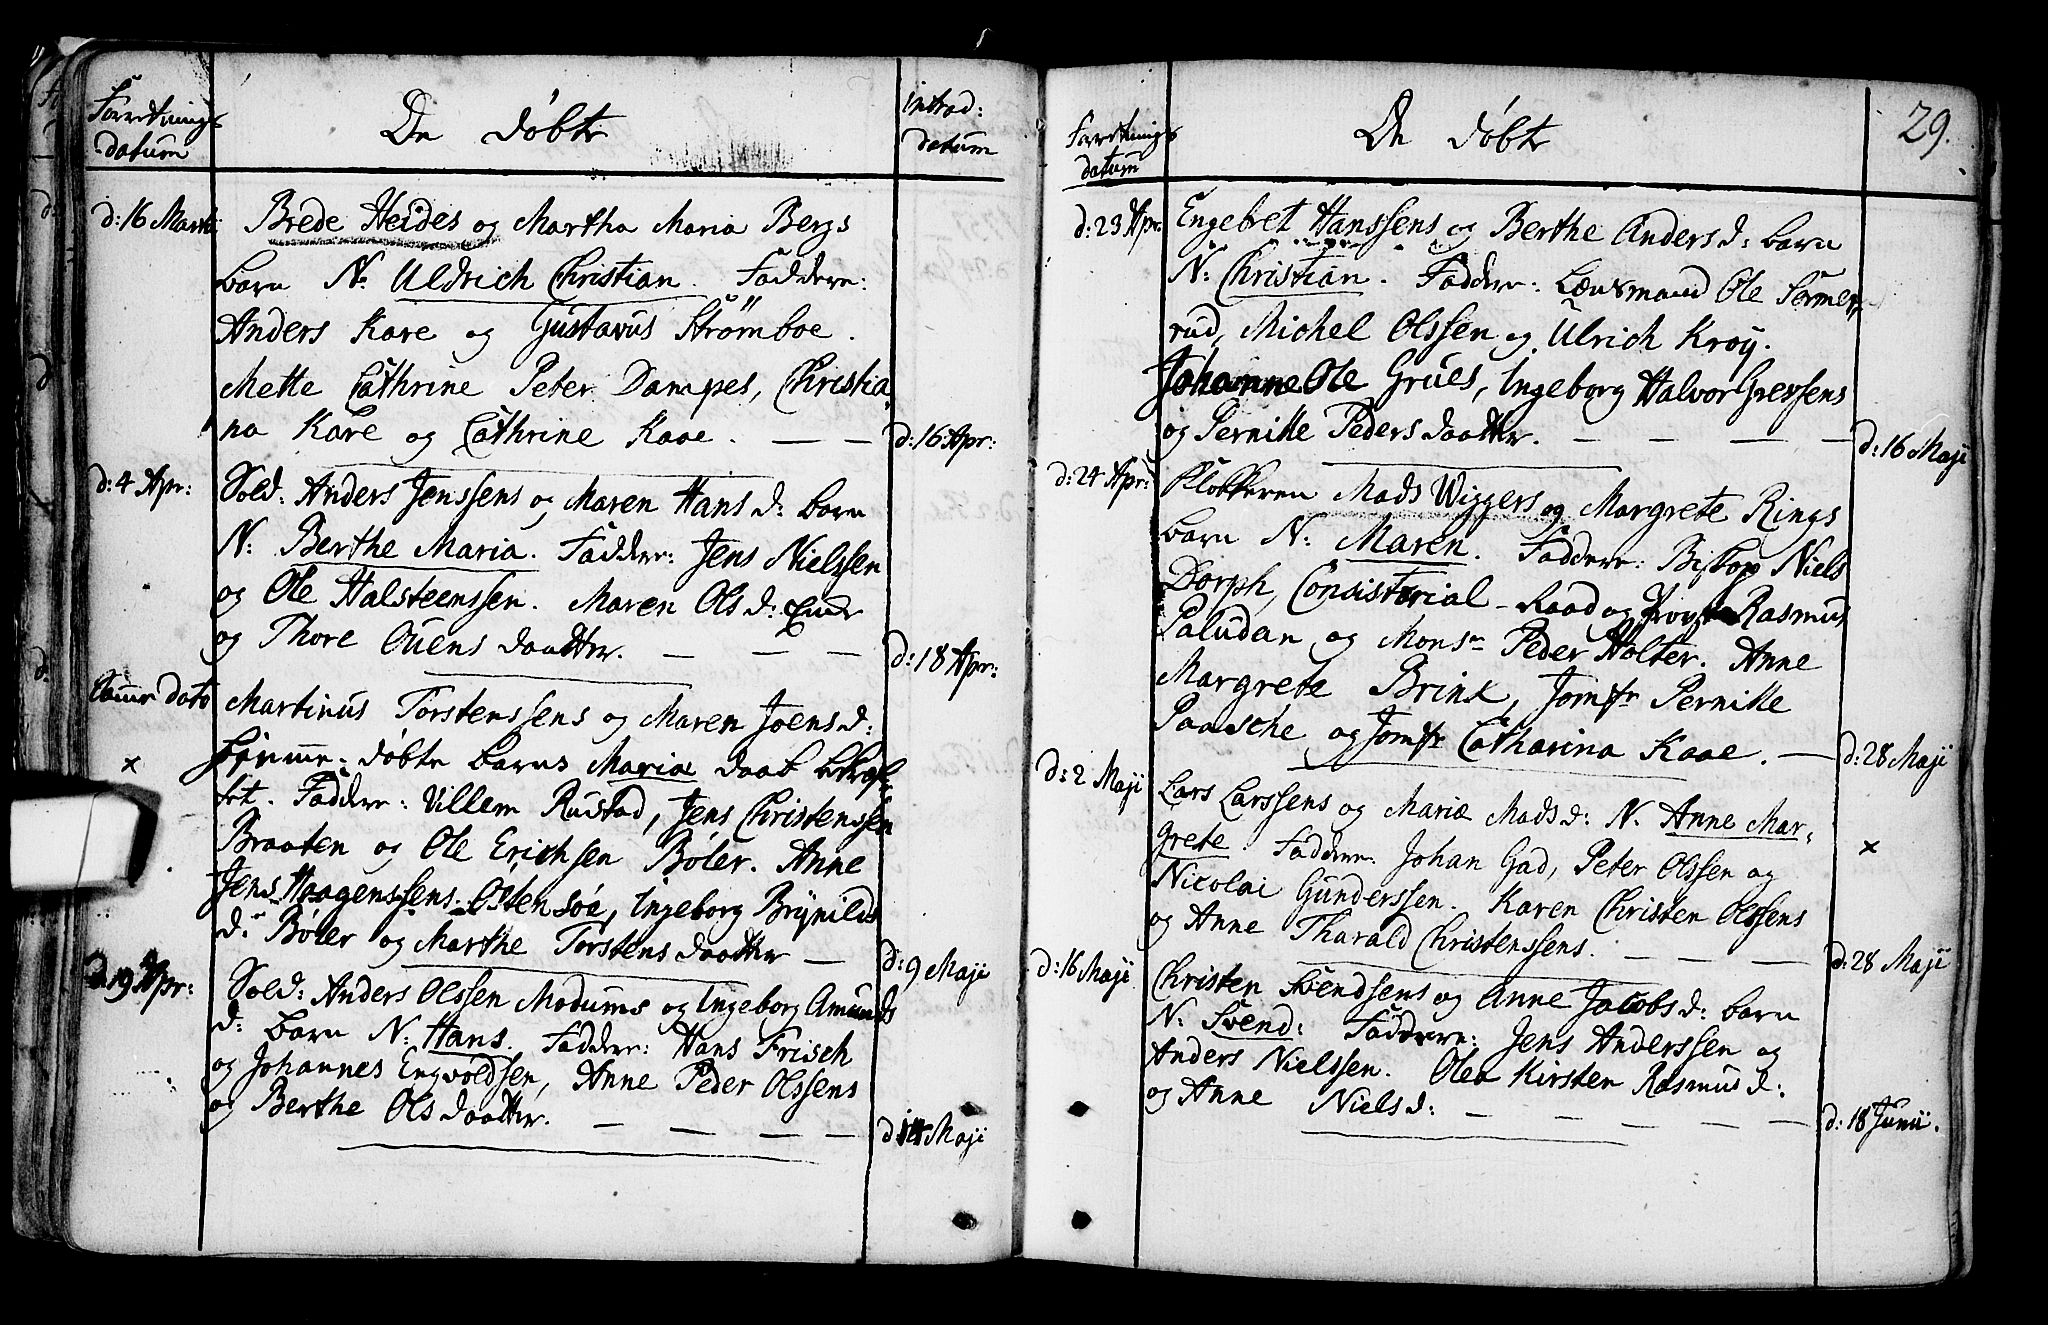 Forretnings
datum
De døbte
introd:
datum
d: 16 Martii
Brede Heides og Martha Maria Bergs
barn N. Uldrich Christian. Faddere:
Anders Kare og Gustavus Strömboe.
Mette Cathrine Peter Dampes, Christia-
na Kare og Cathrine Kaae. — —
d: 16 Apr:
d: 4 Apr:
Sold: Anders Jenssens og Maren Hans d: barn
N: Berthe Maria. Faddere: Jens Nielssen
og Ole Halsteenssen. Maren Ols d:
og Thore Ouens daatter. — — —
d: 18 Apr:
Same dato
Martinus Torstenssens og Maren Joens d:
hjemme-døbte barns Mariæ daab bekræf-
tet. Faddere: Villem Rustad, Jens Christenssen
Braaten og Ole Erichsen Bøler. Anne
Jens Haagenssens Østensøe, Ingeborg Brynilds
d: Bøler og Marthe Torstens daatter —
x
d: 9 Maji
d: 19 Apr:
Sold: Anders Olssen Modums og Ingeborg Amunds
d: barn N: Hans. Faddere: Hans Frisch
og Johannes Engvoldsen, Anne Peder Olssens
og Berthe Ols daatter. — — — —
d: 14 Maji
Forretnings
datum
De døbte
29.
d: 23 Apr:
Engebret Hanssens og Berthe Anders d: barn
N: Christian. Faddere: Lænsmand Ole Sørmer-
rud, Michel Olssen og Ulrich Kroy.
Johanne Ole Grues, Ingeborg Halvor Gressens
og Pernille Peders daatter. — — — —
d: 16 Maji
d: 24 Apr:
Klokkeren Mads Wiggers og Margrete Rings
barn N: Maren. Faddere: Biskop Niels
Dorph, Consistorial-Raad og Provst Rasmus
Paludan og Monsr Peder Holter. Anne
Margrete Brinx, Jomfr Pernille
Paasche og Jomfr Catharina Kaae. —
d: 28 Maji
d: 2 Maji
Lars Larssens og Mariæ Mads d: N. Anne Mar-
grete. Faddere: Johan Gad, Peter Olssen og
Nicolai Gunderssen. Karen Christen Olssens
og Anne Tharald Christenssens. — — —
x
d: 28 Maji
d: 16 Maji
Christen Svendsens og Anne Jacobs d: barn
N: Svend: Faddere: Jens Anderssen og
Anders Nielssen. Olea Kirsten Rasmus d:
og Anne Niels d: — — — —
d: 18 Junii.